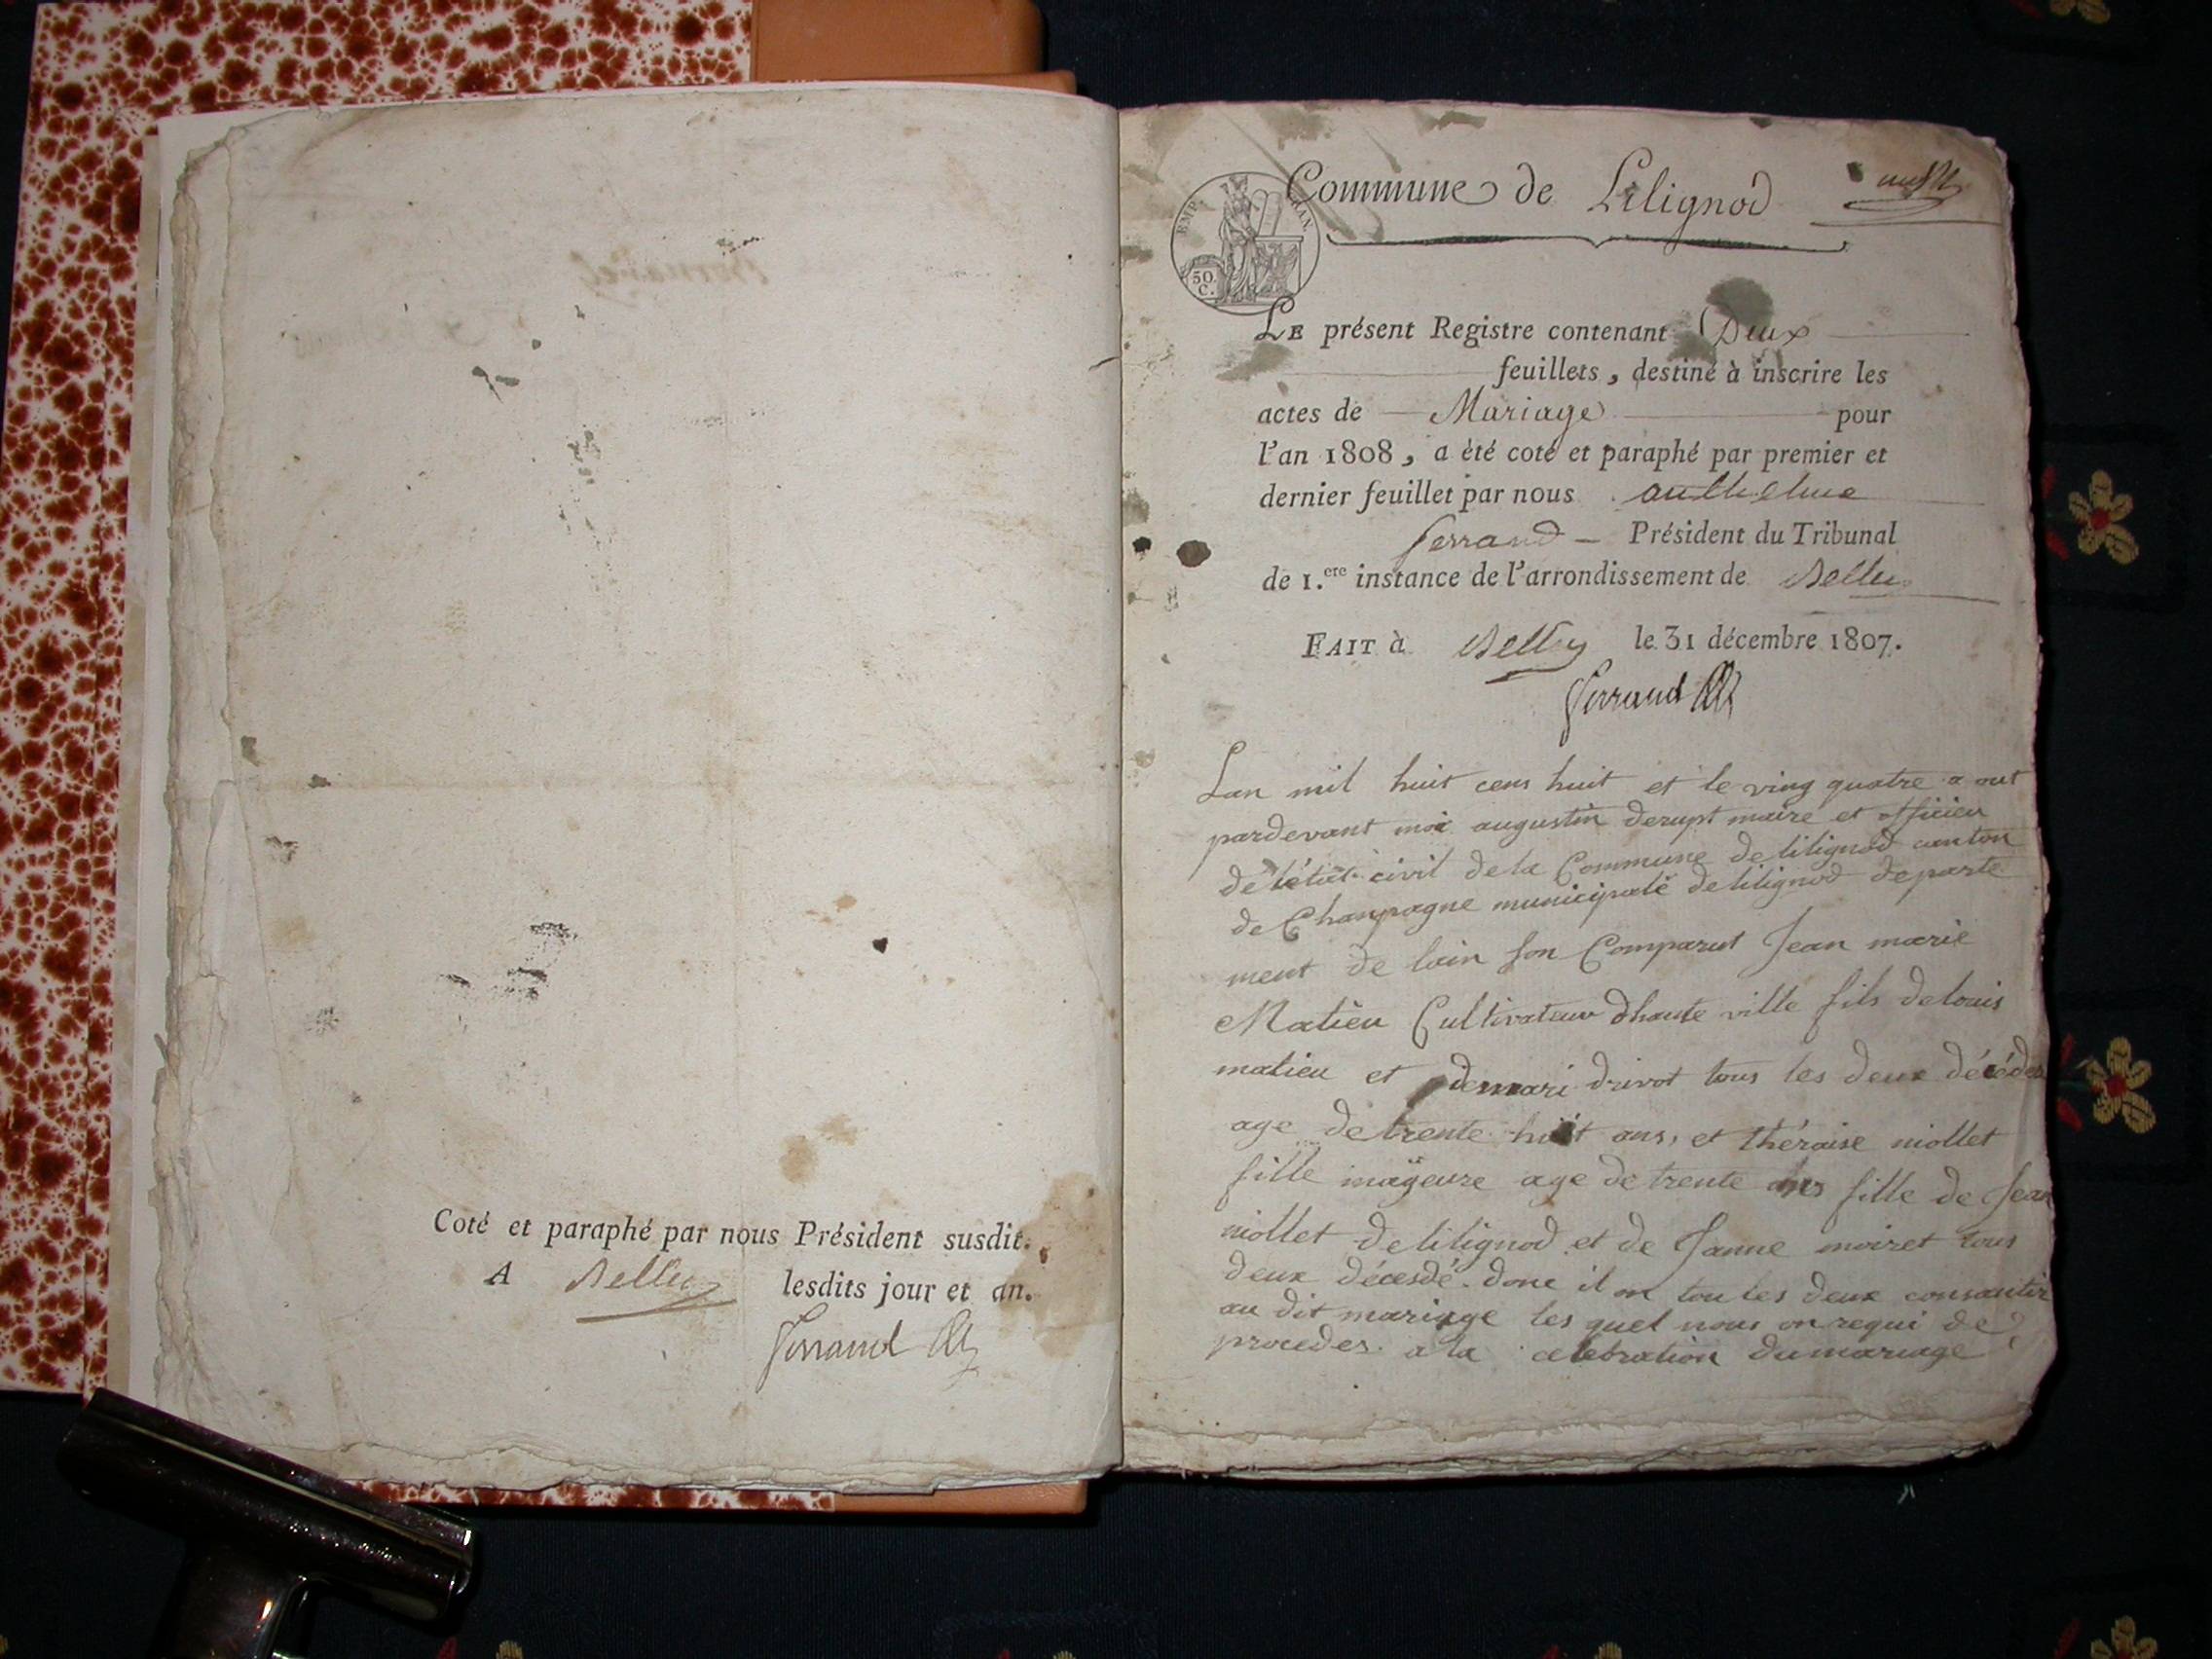 Coté et paraphé par nous Président susdit.
A Belley lesdits jour et an.
Ferrand
Commune de Lilignod
EMP. FRAN.
50
C.
LE présent Registre contenant Deux
feuillets, destiné à inscrire les
actes de Mariage pour
l'an 1808, a été coté et paraphé par premier et
dernier feuillet par nous anthelme
ferrand - Président du Tribunal
de 1.ere instance de l'arrondissement de Belley
FAIT à Belley le 31 décembre 1807.
Ferrand
Lan mil huit cens huit et le ving quatre a out
pardevant moi augustin derupt maire et officier
de létat civil de la Commune de lilignod canton
de Champagne municipalé de lilignod departe
ment de lain son Comparut Jean marie
Matieu Cultivateur dhaute ville fils de louis
matieu et demari drivot tous les deux décédés
age de trente huit ans, et théraise niollet
fille mageure age de trente ans fille de Jean
niollet de lilignod et de Janne moiret tous
deux décesdé. donc il on tou les deux consantir
au dit mariage les quel nous on requi de
proceder a la celebration du mariage